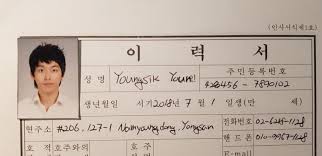 (인사서식제1호)
이 력 서
성 명 Youngsik Youn 주민등록번호
428456 - 7890102
생년월일 서기2018년 7월 1일생(만 세)
현주소 #206, 127-1 Namyoungdong, Yongsan 02-6248-1128
핸드폰 010-9967-1128
호주와의 호주 E-mail